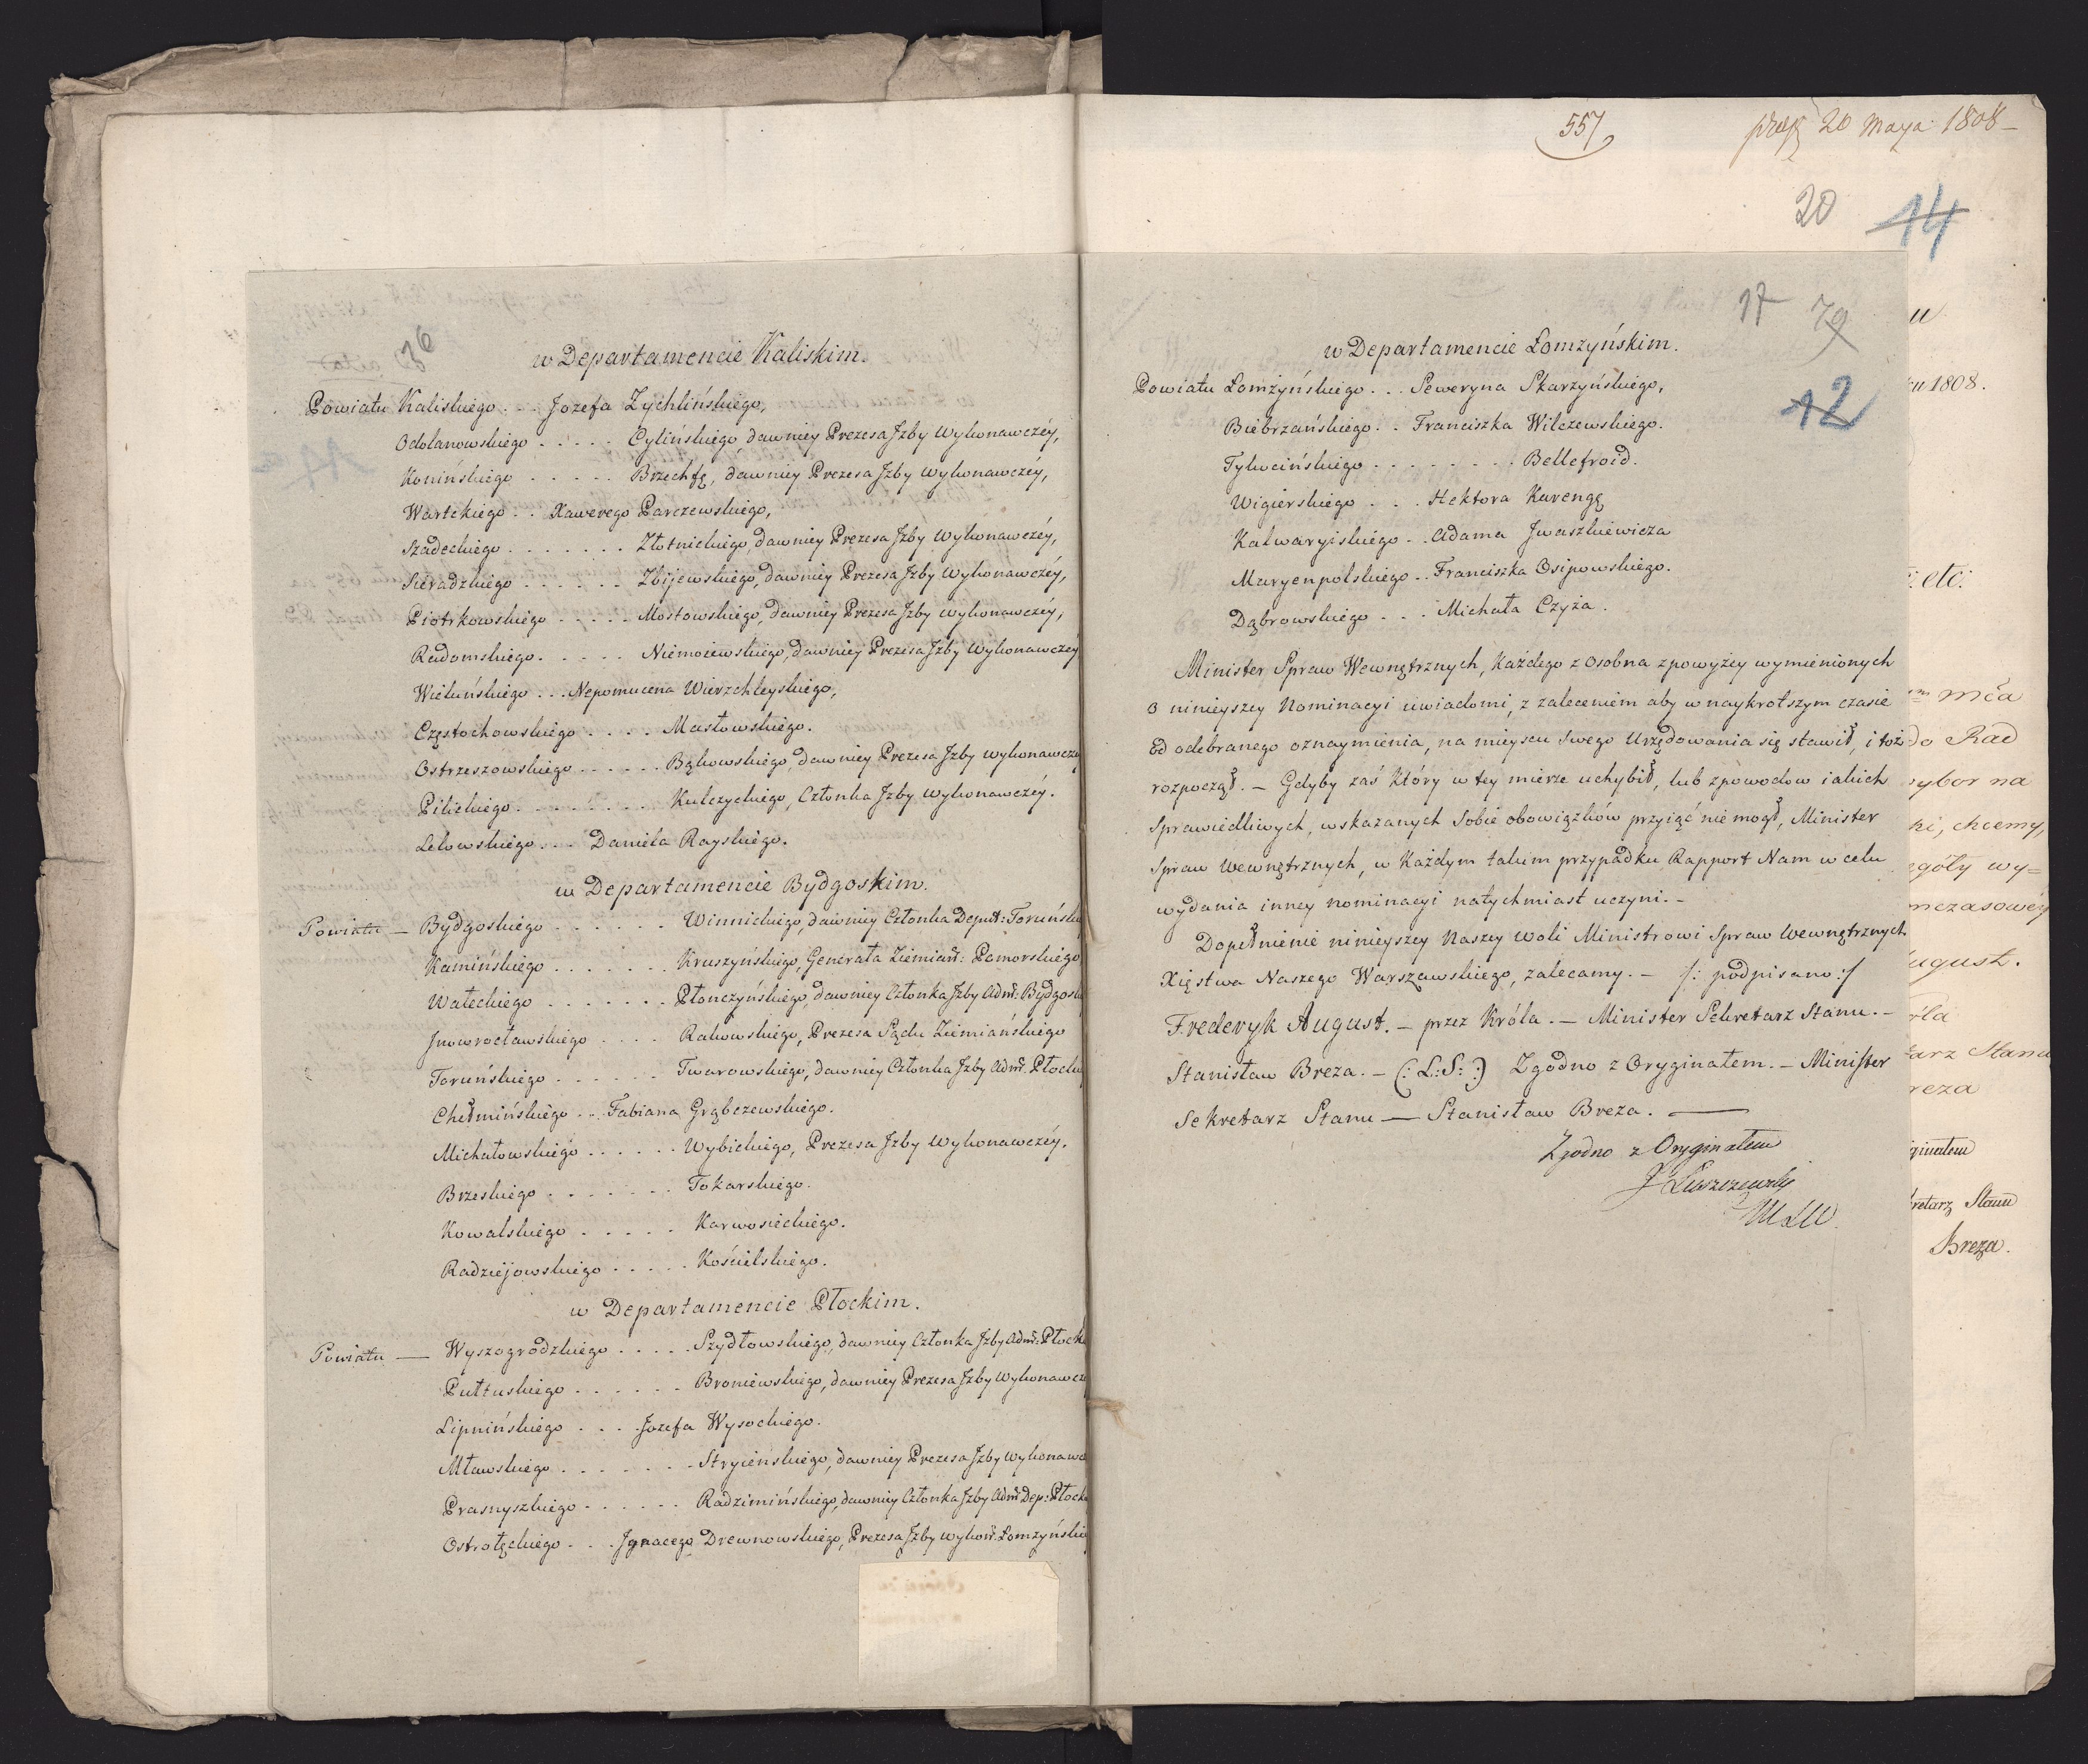 36
w Departamencie Kaliskim.
Powiatu Kaliskiego . . . Jozefa Zychlińskiego,
Odolanowskiego . . . . . Cylińskiego, dawniey Prezesa Jzby Wykonawczéy,
Konińskiego . . . . . Brzechfę, dawniey Prezesa Jzby Wykonawczéy,
Wartckiego . . Xawerego Parczewskiego,
Szadeckiego . . . . . . . Złotnickiego, dawniey Prezesa Jzby Wykonawczéy,
Sieradzkiego . . . . . . Zbijewskiego, dawniey Prezesa Jzby Wykonawczéy,
Piotrkowskiego . . . . . Mostowskiego, dawniey Prezesa Jzby Wykonawczéy,
Radomskiego . . . . . Niemoiewskiego, dawniey Prezesa Jzby Wykonawczéy
Wieluńskiego . . . Nepomucena Wierzchleyskiego,
Częstochowskiego . . . . Masłowskiego.
Ostrzeszowskiego . . . . . . Bąkowskiego, dawniey Prezesa Jzby Wykonawczéy
Pilickiego . . . . . . . . Kulczyckiego, Członka Jzby Wykonawczéy.
Lelowskiego . . . Daniela Rayskiego.
w Departamencie Bydgoskim.
Powiatu — Bydgoskiego . . . . . . Winnickiego, dawniey Członka Deput: Toruńskiey
Kamińskiego . . . . . . . Kruszyńskiego, Generała Ziemiań: Pomorskiego
Wałeckiego . . . . . . . Płonczyńskiego, dawniey Członka Jzby Adm: Bydgosk
Jnowrocławskiego . . . . Rakowskiego, Prezesa Sądu Ziemiańskiego
Toruńskiego . . . . . . Twarowskiego, dawniey Członka Jzby Adm. Płock
Chełmińskiego . . . Fabiana Grąbczewskiego.
Michałowskiego . . . . . . Wybickiego, Prezesa Jzby Wykonawczéy.
Brzeskiego . . . . . . . Tokarskiego.
Kowalskiego . . . . . Karwosieckiego.
Radziejowskiego . . . . . Kościelskiego.
w Departamencie Płockim.
Powiatu — Wyszogrodzkiego . . . . . Szydłowskiego, dawniey Członka Jzby Adm: Płock
Pułtuskiego . . . . . . Broniewskiego, dawniey Prezesa Jzby Wykonawcz
Lipnińskiego . . . Jozefa Wysockiego.
Mławskiego . . . . . . . Stryieńskiego, dawniey Prezesa Jzby Wykonawc
Prasnyszkiego . . . . . . Radzimińskiego, dawniey Członka Jzby Adm Dep: Płock
Ostrołęckiego . . . Jgnacego Drewnowskiego, Prezesa Jzby Wykon: Łomzyńskiey
557
20 Maya 1808 —
20 14
17 79
12
w Departamencie Łomzyńskim.
Powiatu Łomżyńskiego . . . Seweryna Skarzyńskiego,
Biebrzańskiego . . Franciszka Wilczewskiego.
Tykocińskiego . . . . . . . . Bellefroid.
Wigierskiego . . . Hektora Karengę
Kalwaryiskiego . . Adama Jwaszkiewicza
Maryenpolskiego . . Franciszka Osipowskiego.
Dąbrowskiego . . . Michała Czyża.
Minister Spraw Wewnętrznych, Każdego z osobna z powyżey wymienionych
o ninieyszey Nominacyi uwiadomi, z zaleceniem aby w naykrotszym czasie
od odebranego oznaymienia, na mieyscu Swego Urzędowania się stawił, i toż
rozpoczął. — Gdyby zaś Który w tey mierze uchybił, lub z powodow iakich
Sprawiedliwych, wskazanych Sobie obowiązków przyiąć nie mogł, Minister
Spraw Wewnętrznych, w Każdym takim przypadku Rapport Nam w celu
wydania inney nominacyi natychmiast uczyni. —
Dopełnienie ninieyszey Naszey Woli Ministrowi Spraw Wewnętrznych
Xięstwa Naszego Warszawskiego, zalecamy. — /: podpisano :/
Frederyk August. — przez Króla. — Minister Sekretarz Stanu. —
Stanisław Breza. — (: L: S: :) Zgodno z Oryginałem. — Minister
Sekretarz Stanu — Stanisław Breza. —
Zgodno z Oryginałem
J Łuszczewski
MSW.
u
1808.
etc:
mća
do Rad
wybor na
ki, chcemy,
góły wy=
mczasowéy
August.
Króla
arz Stanu
reza
ginałem
kretarz Stanu
Breza.